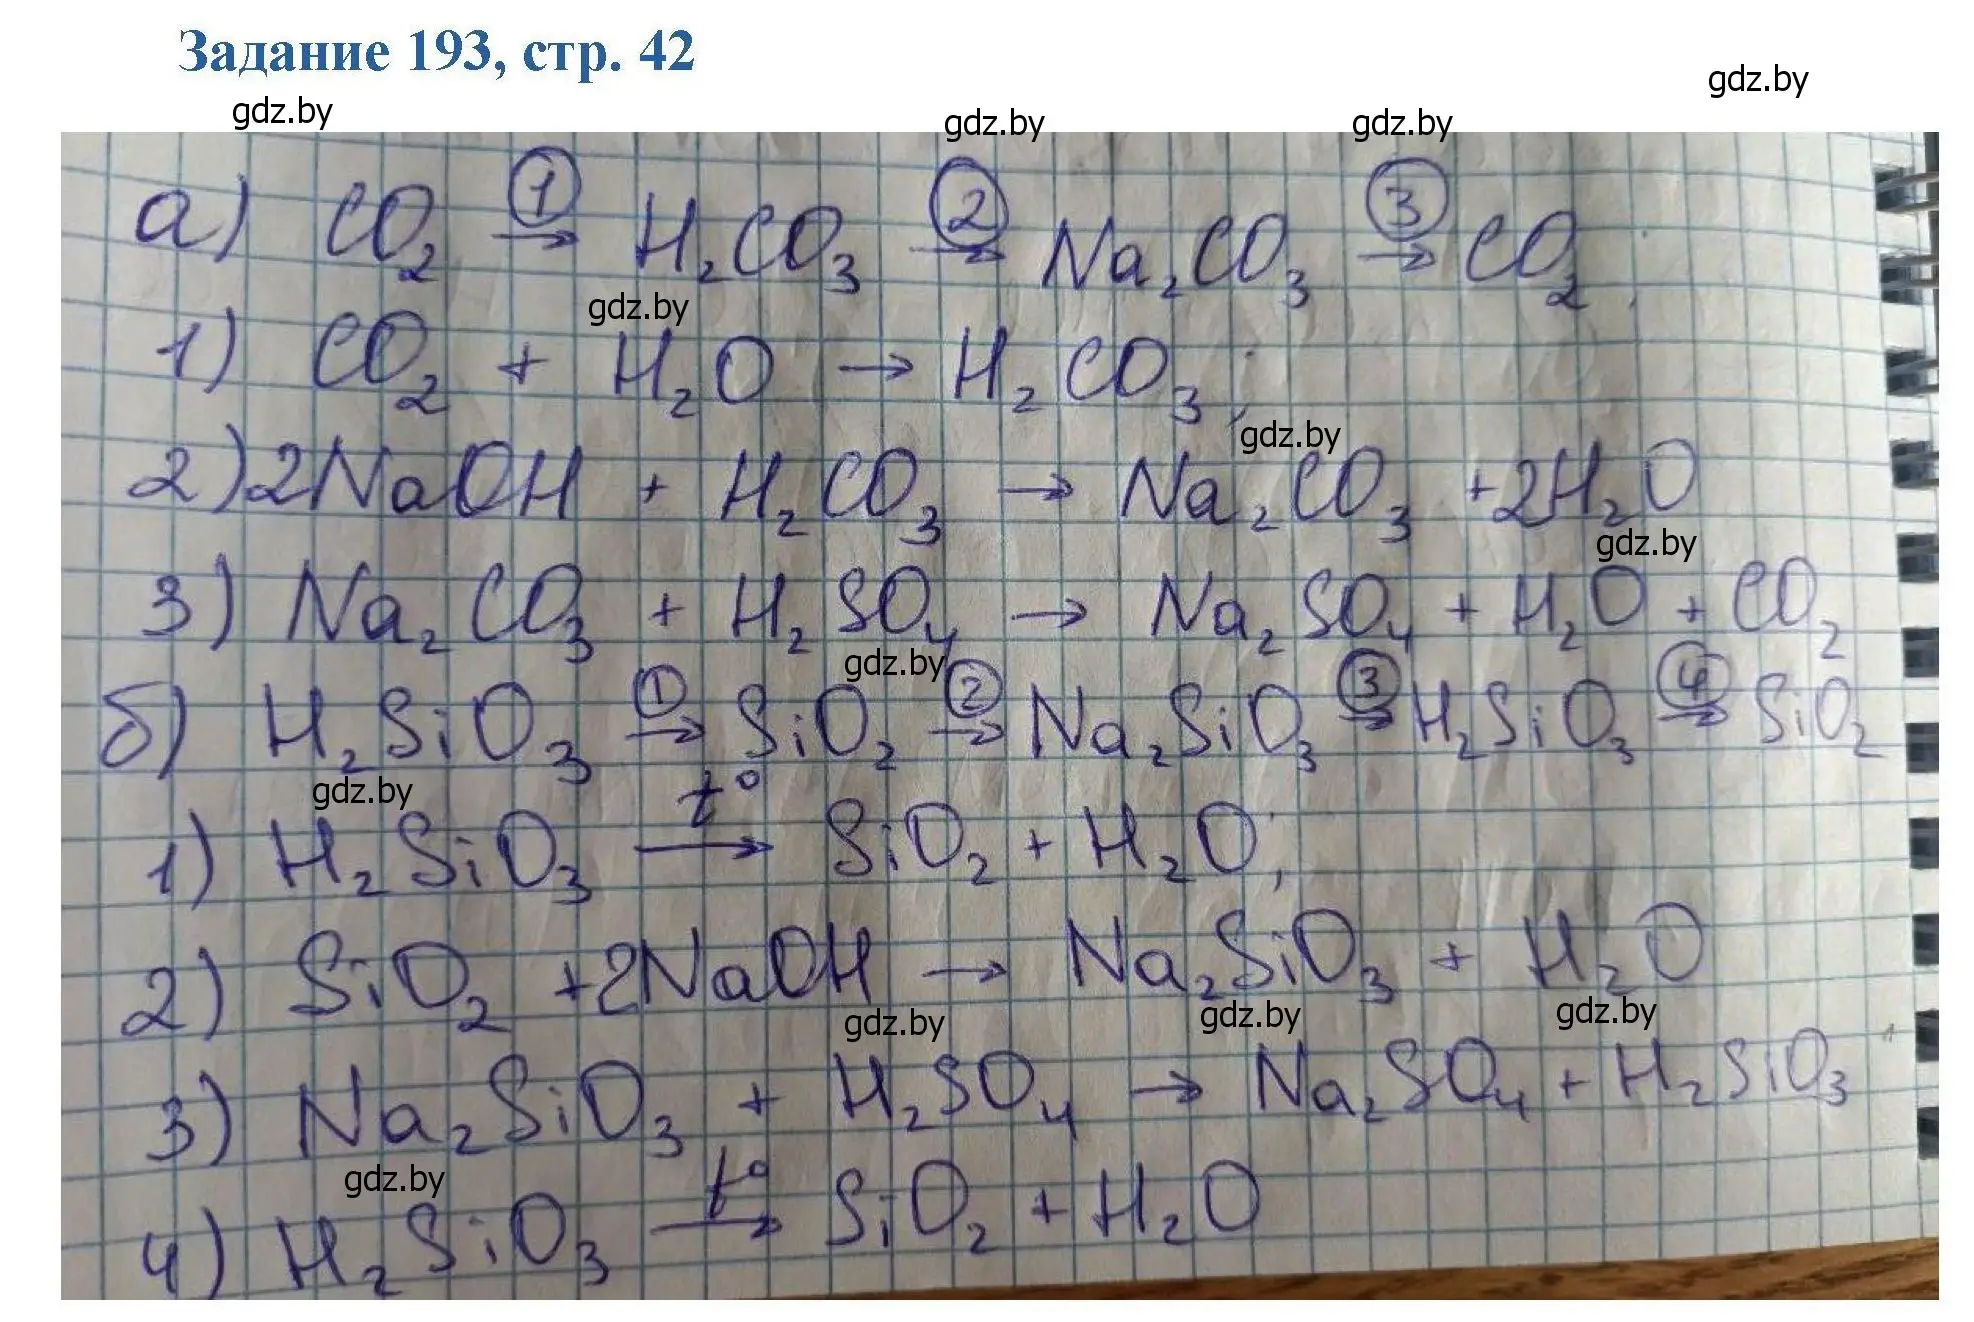 Задание 193, стр. 42
gdz.by
gdz.by gdz.by gdz.by
а) CO₂ →① H₂CO₃ →② Na₂CO₃ →③ CO₂;
gdz.by
1) CO₂ + H₂O → H₂CO₃;
gdz.by
2) 2NaOH + H₂CO₃ → Na₂CO₃ + 2H₂O
gdz.by
3) Na₂CO₃ + H₂SO₄ → Na₂SO₄ + H₂O + CO₂
gdz.by
б) H₂SiO₃ →① SiO₂ →② Na₂SiO₃ →③ H₂SiO₃ →④ SiO₂
gdz.by
1) H₂SiO₃ →t° SiO₂ + H₂O;
2) SiO₂ + 2NaOH → Na₂SiO₃ + H₂O
gdz.by gdz.by gdz.by
3) Na₂SiO₃ + H₂SO₄ → Na₂SO₄ + H₂SiO₃
gdz.by
4) H₂SiO₃ →t° SiO₂ + H₂O